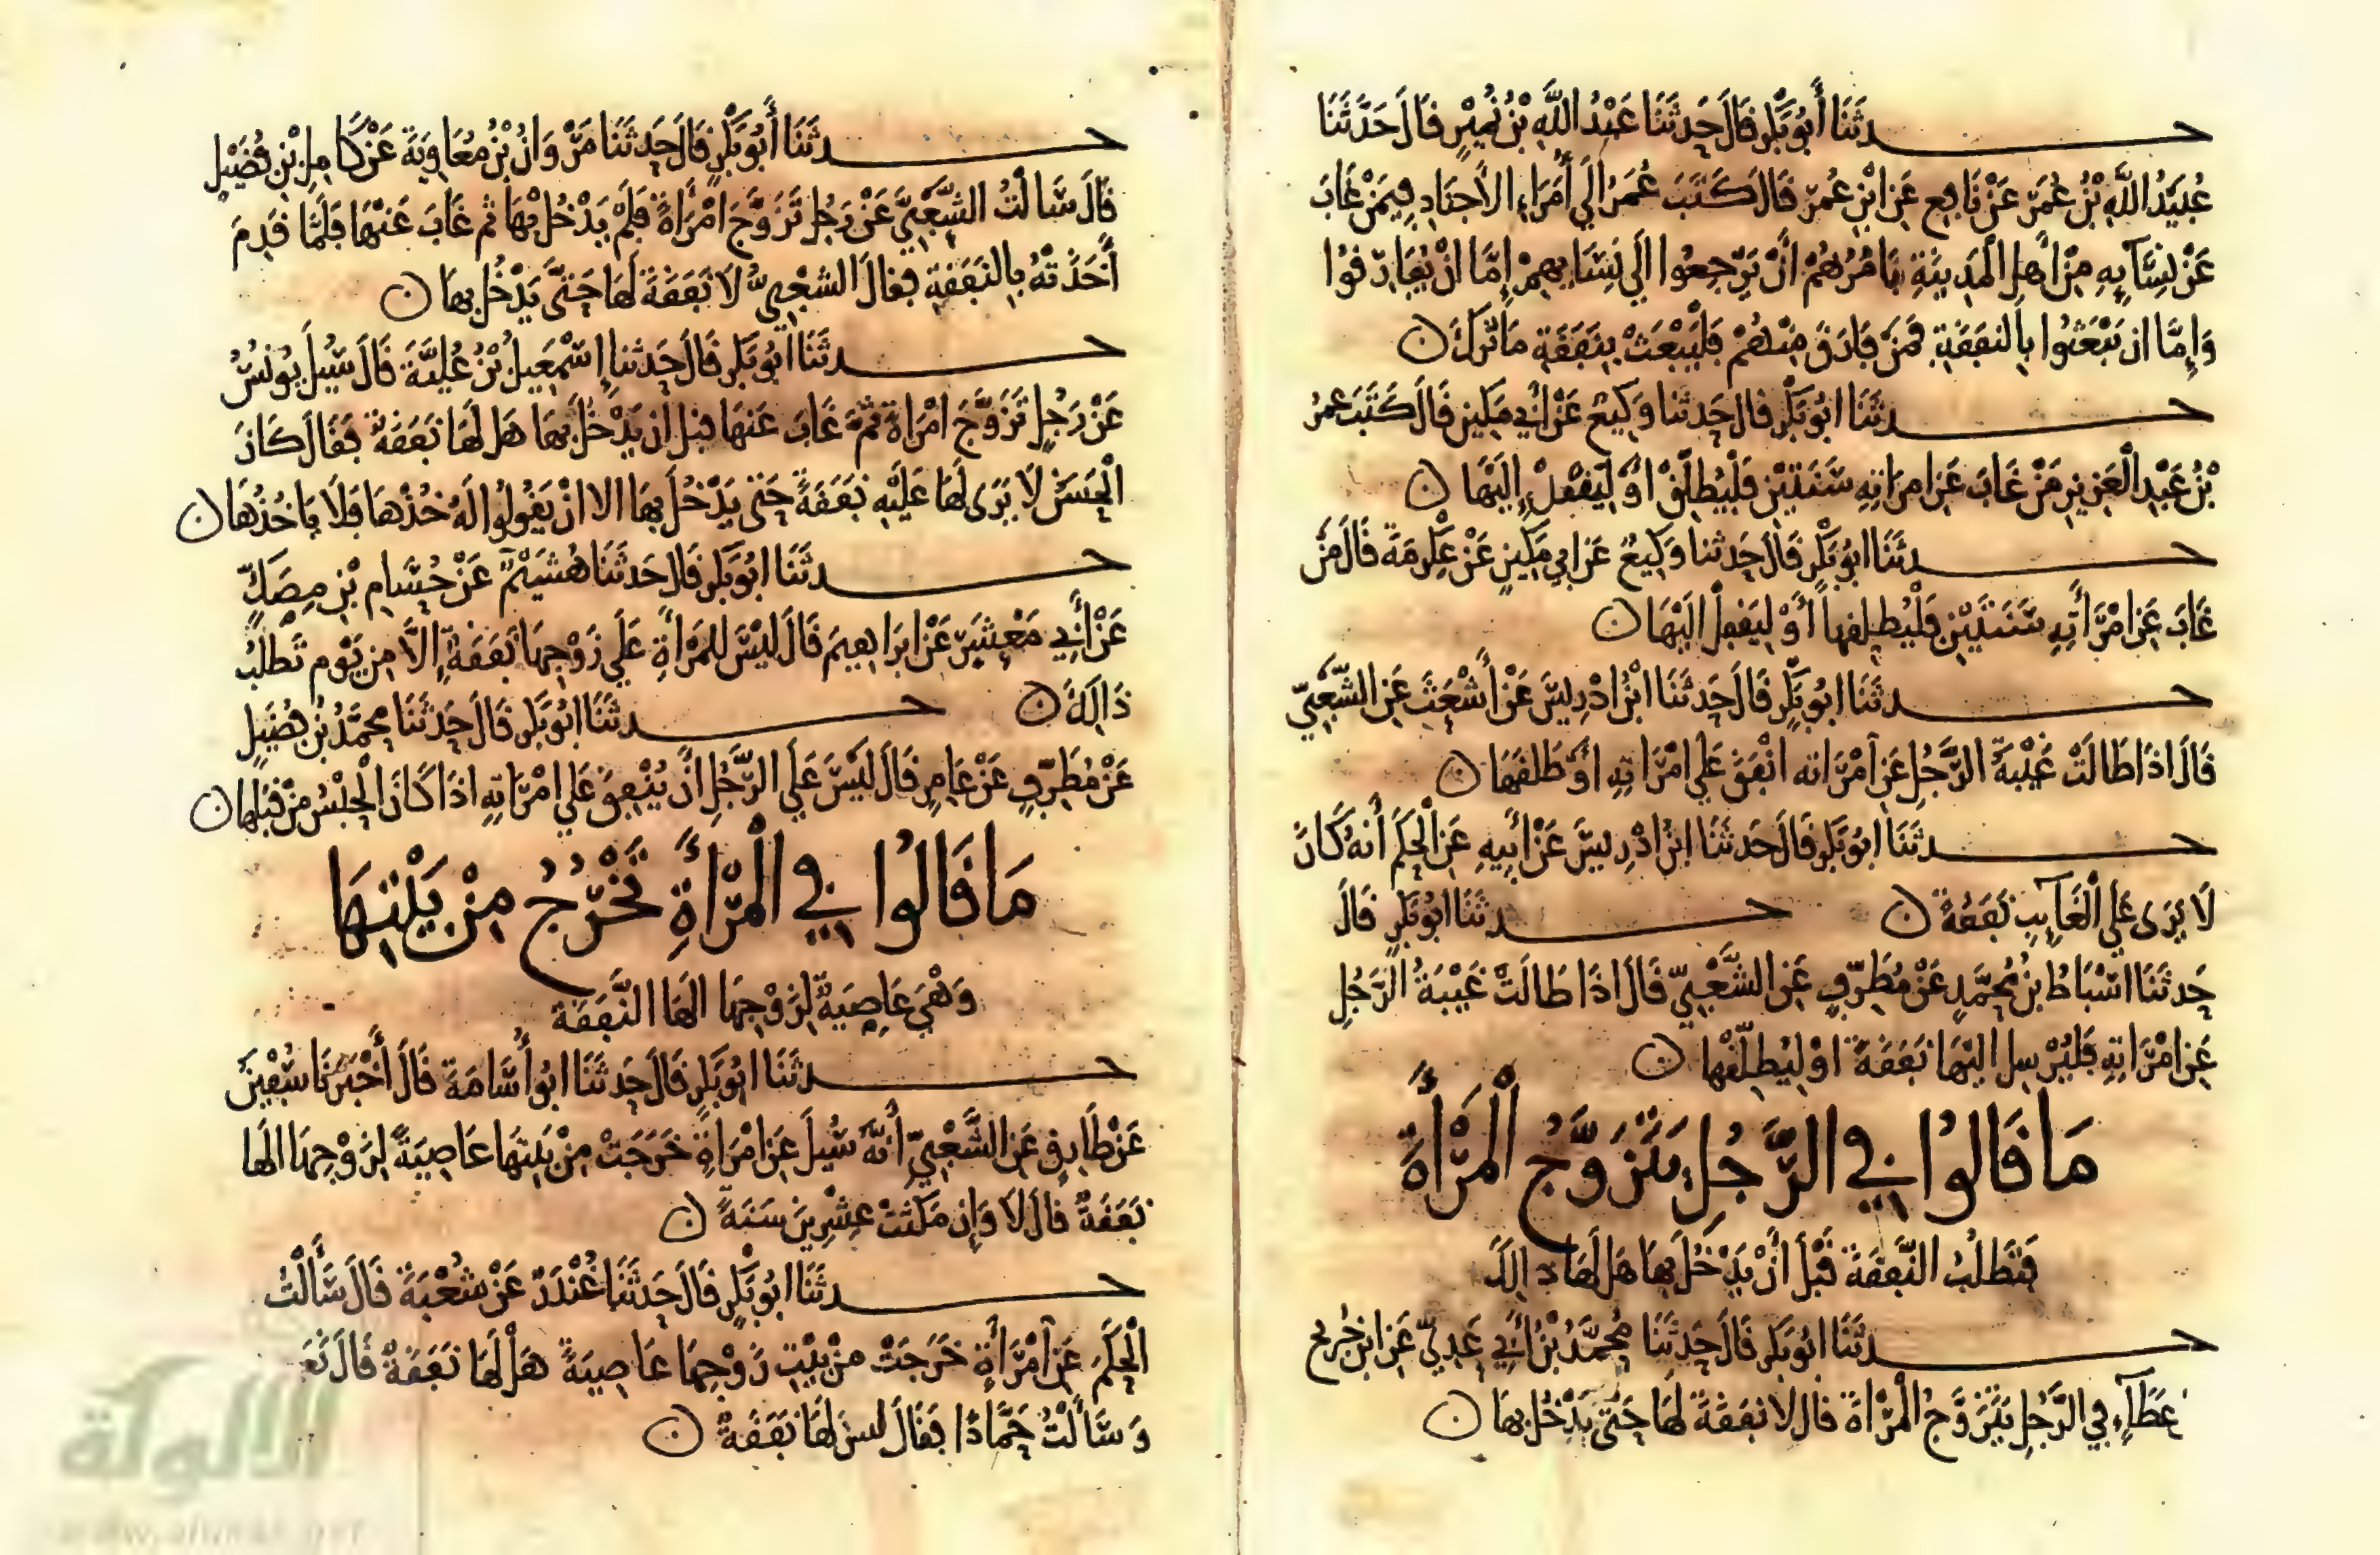 حدثنا أبو بكر قال حدثنا عبد الله بن نمير قال حدثنا
عبيد الله بن عمر عن نافع عن ابن عمر قال كتب عمر إلي أمراء الأجناد فيمن غاب
عن نسآيه من أهل المدينة يامرهم أن يرجعوا الي نسايهم إمّا ان يفارقوا
وإمّا ان يبعثوا بالنفقة فمن فارق منهم فليبعث بنفقة ما ترك
حدثنا ابو بكر قال حدثنا وكيع عن أبي مكين قال كتب عمر
بن عبد العزيز من غاب عن امراته سنتين فليطلّق أو ليقفل إليها
حدثنا ابو بكر قال حدثنا وكيع عن ابي مكين عن عكرمة قال من
غاب عن امرأته سنتين فليطلقها أو ليقفل اليها
حدثنا ابو بكر قال حدثنا ابن ادريس عن أشعث عن الشعبيّ
قال اذا طالت غيبة الرّجل عن امراته انفق علي امراته او طلقها
حدثنا ابو بكر قال حدثنا ابن ادريس عن أبيه عن الحكم أنه كان
لا يرى علي الغآيب نفقة حدثنا ابو بكر قال
حدثنا اسباط بن محمّد عن مطرّف عن الشّعبيّ قال اذا طالت غيبة الرّجل
عن امراته فليرسل اليها نفقة او ليطلّقها
ما قالوا في الرّجل يتزوّج المرأة
فتطلب النّفقة قبل أن يدخل بها هل لها ذالك
حدثنا ابو بكر قال حدثنا محمّد بن أبي عديّ عن ابن جريج
عطآء في الرّجل يتزوّج المرأة قال لا نفقة لها حتى يدخل بها
حدثنا أبو بكر قال حدثنا مروان بن معاوية عن كامل بن فضيل
قال سالت الشّعبيّ عن رجل تزوّج امرأة فلم يدخل بها ثم غاب عنها فلمّا قدم
أخذته بالنفقة فقال الشعبيّ لا نفقة لها حتّى يدخل بها
حدثنا ابو بكر قال حدثنا إسمعيل بن عليّة قال سيل يونس
عن رجل تزوّج امراة ثمّ غاب عنها قبل ان يدخل بها هل لها نفقة فقال كان
الحسن لا يرى لها عليه نفقة حتى يدخل بها الا ان يقولوا له خذها فلا ياخذها
حدثنا ابو بكر قال حدثنا هشيم عن حسام بن مصكّ
عن أبي معشر عن ابراهيم قال ليس للمرأة علي زوجها نفقة إلّا من يوم تطلب
ذالك حدثنا ابو بكر قال حدثنا محمّد بن فضيل
عن مطرّف عن عامر قال ليس علي الرّجل ان ينفق علي امراته اذا كان الحبس من قبلها
ما قالوا في المرأة تخرج من بيتها
وهي عاصية لزوجها الها النّفقة
حدثنا ابو بكر قال حدثنا ابو أسامة قال أخبرنا سفين
عن طارق عن الشّعبيّ أنّه سيل عن امراة خرجت من بيتها عاصية لزوجها الها
نفقة قال لا وإن مكثت عشرين سنة
حدثنا ابو بكر قال حدثنا غندر عن شعبة قال سألت
الحكم عن امرأة خرجت من بيت زوجها عاصية هل لها نفقة قال نع
وسألت حمّادًا فقال ليس لها نفقة
الألوكة
www.alukah.net